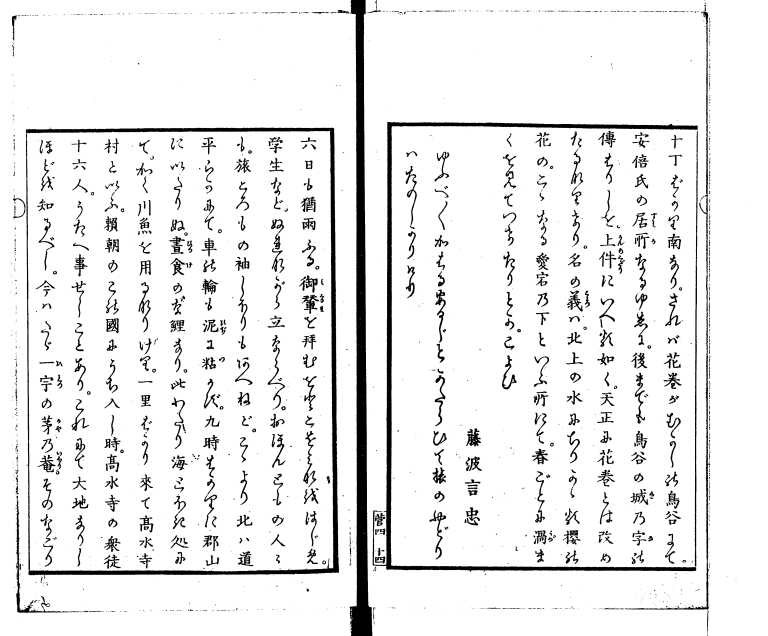 十丁ばかり南なり。されば花巻がむかしの鳥谷にて。
安倍氏の居所なるゆゑに。後までも鳥谷の城の字の
傳はりしを。上件にいへる如く。天正に花巻とは改め
たるなりけり。名の義は。北上の水にちりうく櫻の
花の。こゝなる愛宕の下といふ所にて。春ごとに渦ま
くを見ていひたりとぞ。こよひ
藤波言忠
旅のやどり
はたのしかりけり
六日も猶雨ふる。御輦を拜むとてこそあれはじめ。
学生など。ぬれながら立ならべり。おほんともの人々
も。旅ころもの袖しぼりもあへねど。こゝより北は道
平らかにて。車の輪も泥に粘かず。九時すぐるに郡山
にいたりぬ。晝食のに鯉あり。此わたり海とほき処に
て。かく川魚を用るなりけり。一里ばかり來て高水寺
村といふ。頼朝のこの國にうち入し時。高水寺の衆徒
十六人。うたへ事せしことあり。これにて大地なりし
ほどを知るべし。今はたゞ一宇の茅の菴そのなごり
菅四 十四